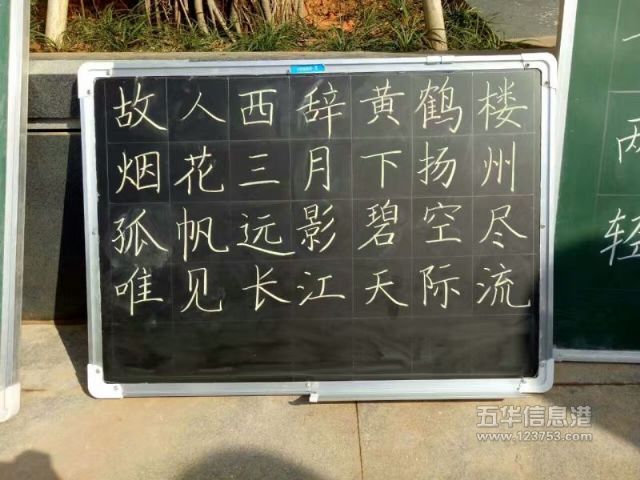 故人西辞黄鹤楼
烟花三月下扬州
孤帆远影碧空尽
唯见长江天际流
两
轻
五华信息港
www.123753.com